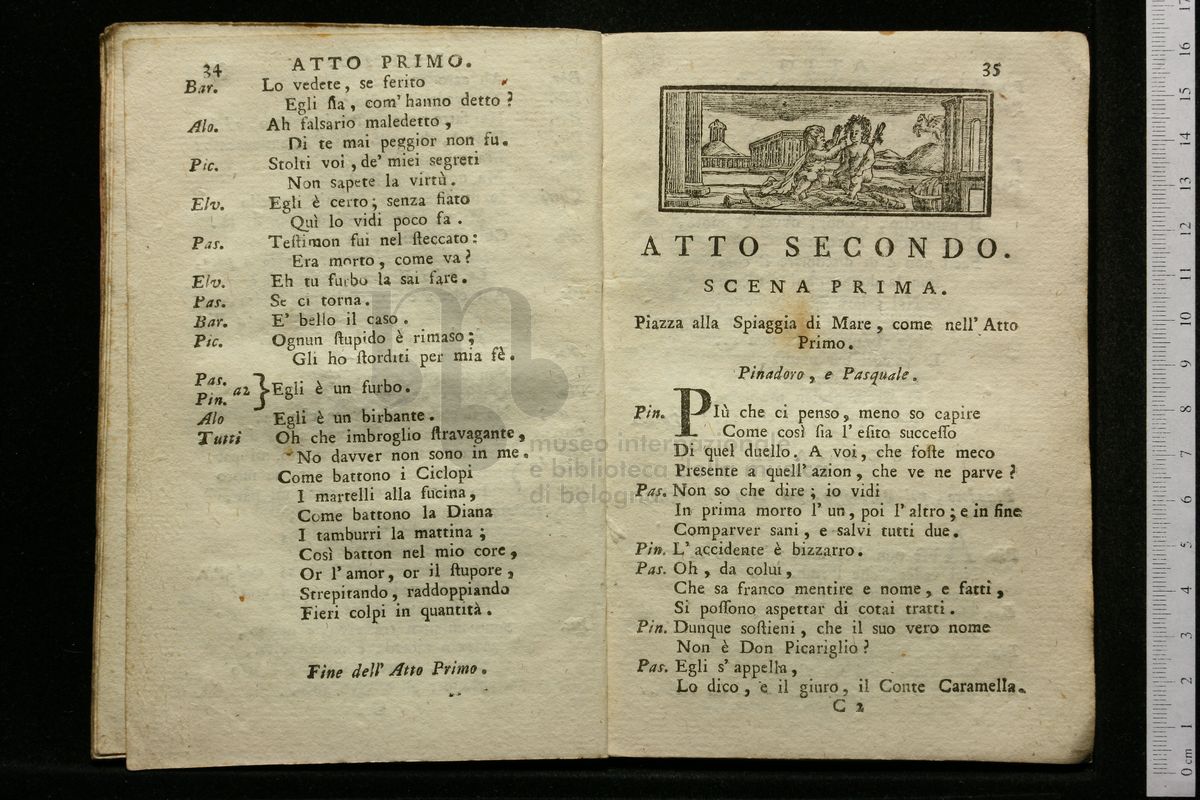 34 ATTO PRIMO.
Bar. Lo vedete, se ferito
Egli ſia, com' hanno detto?
Alo. Ah falsario maledetto,
Di te mai peggior non fu.
Pic. Stolti voi, de' miei segreti
Non sapete la virtù.
Elv. Egli è certo; senza fiato
Quì lo vidi poco fa.
Pas. Teſtimon fui nel ſteccato:
Era morto, come va?
Elv. Eh tu furbo la sai fare.
Pas. Se ci torna.
Bar. E' bello il caso.
Pic. Ognun ſtupido è rimaso;
Gli ho ſtorditi per mia fè.
Pas.
Pin. a2 } Egli è un furbo.
Alo Egli è un birbante.
Tutti Oh che imbroglio ſtravagante,
No davver non sono in me.
Come battono i Ciclopi
I martelli alla fucina,
Come battono la Diana
I tamburri la mattina;
Così batton nel mio core,
Or l'amor, or il ſtupore,
Strepitando, raddoppiando
Fieri colpi in quantità.
Fine dell' Atto Primo.
35
ATTO SECONDO.
SCENA PRIMA.
Piazza alla Spiaggia di Mare, come nell' Atto
Primo.
Pinadoro, e Pasquale.
Pin. PIù che ci penso, meno so capire
Come così ſia l' eſito succeſſo
Di quel duello. A voi, che foſte meco
Presente a quell' azion, che ve ne parve?
Pas. Non so che dire; io vidi
In prima morto l' un, poi l' altro; e in fine
Comparver sani, e salvi tutti due.
Pin. L' accidente è bizzarro.
Pas. Oh, da colui,
Che sa franco mentire e nome, e fatti,
Si poſſono aspettar di cotai tratti.
Pin. Dunque soſtieni, che il suo vero nome
Non è Don Picariglio?
Pas. Egli s' appella,
Lo dico, e il giuro, il Conte Caramella.
C 2
museo internazionale
e biblioteca della musica
di bologna
0 cm 1 2 3 4 5 6 7 8 9 10 11 12 13 14 15 16 17